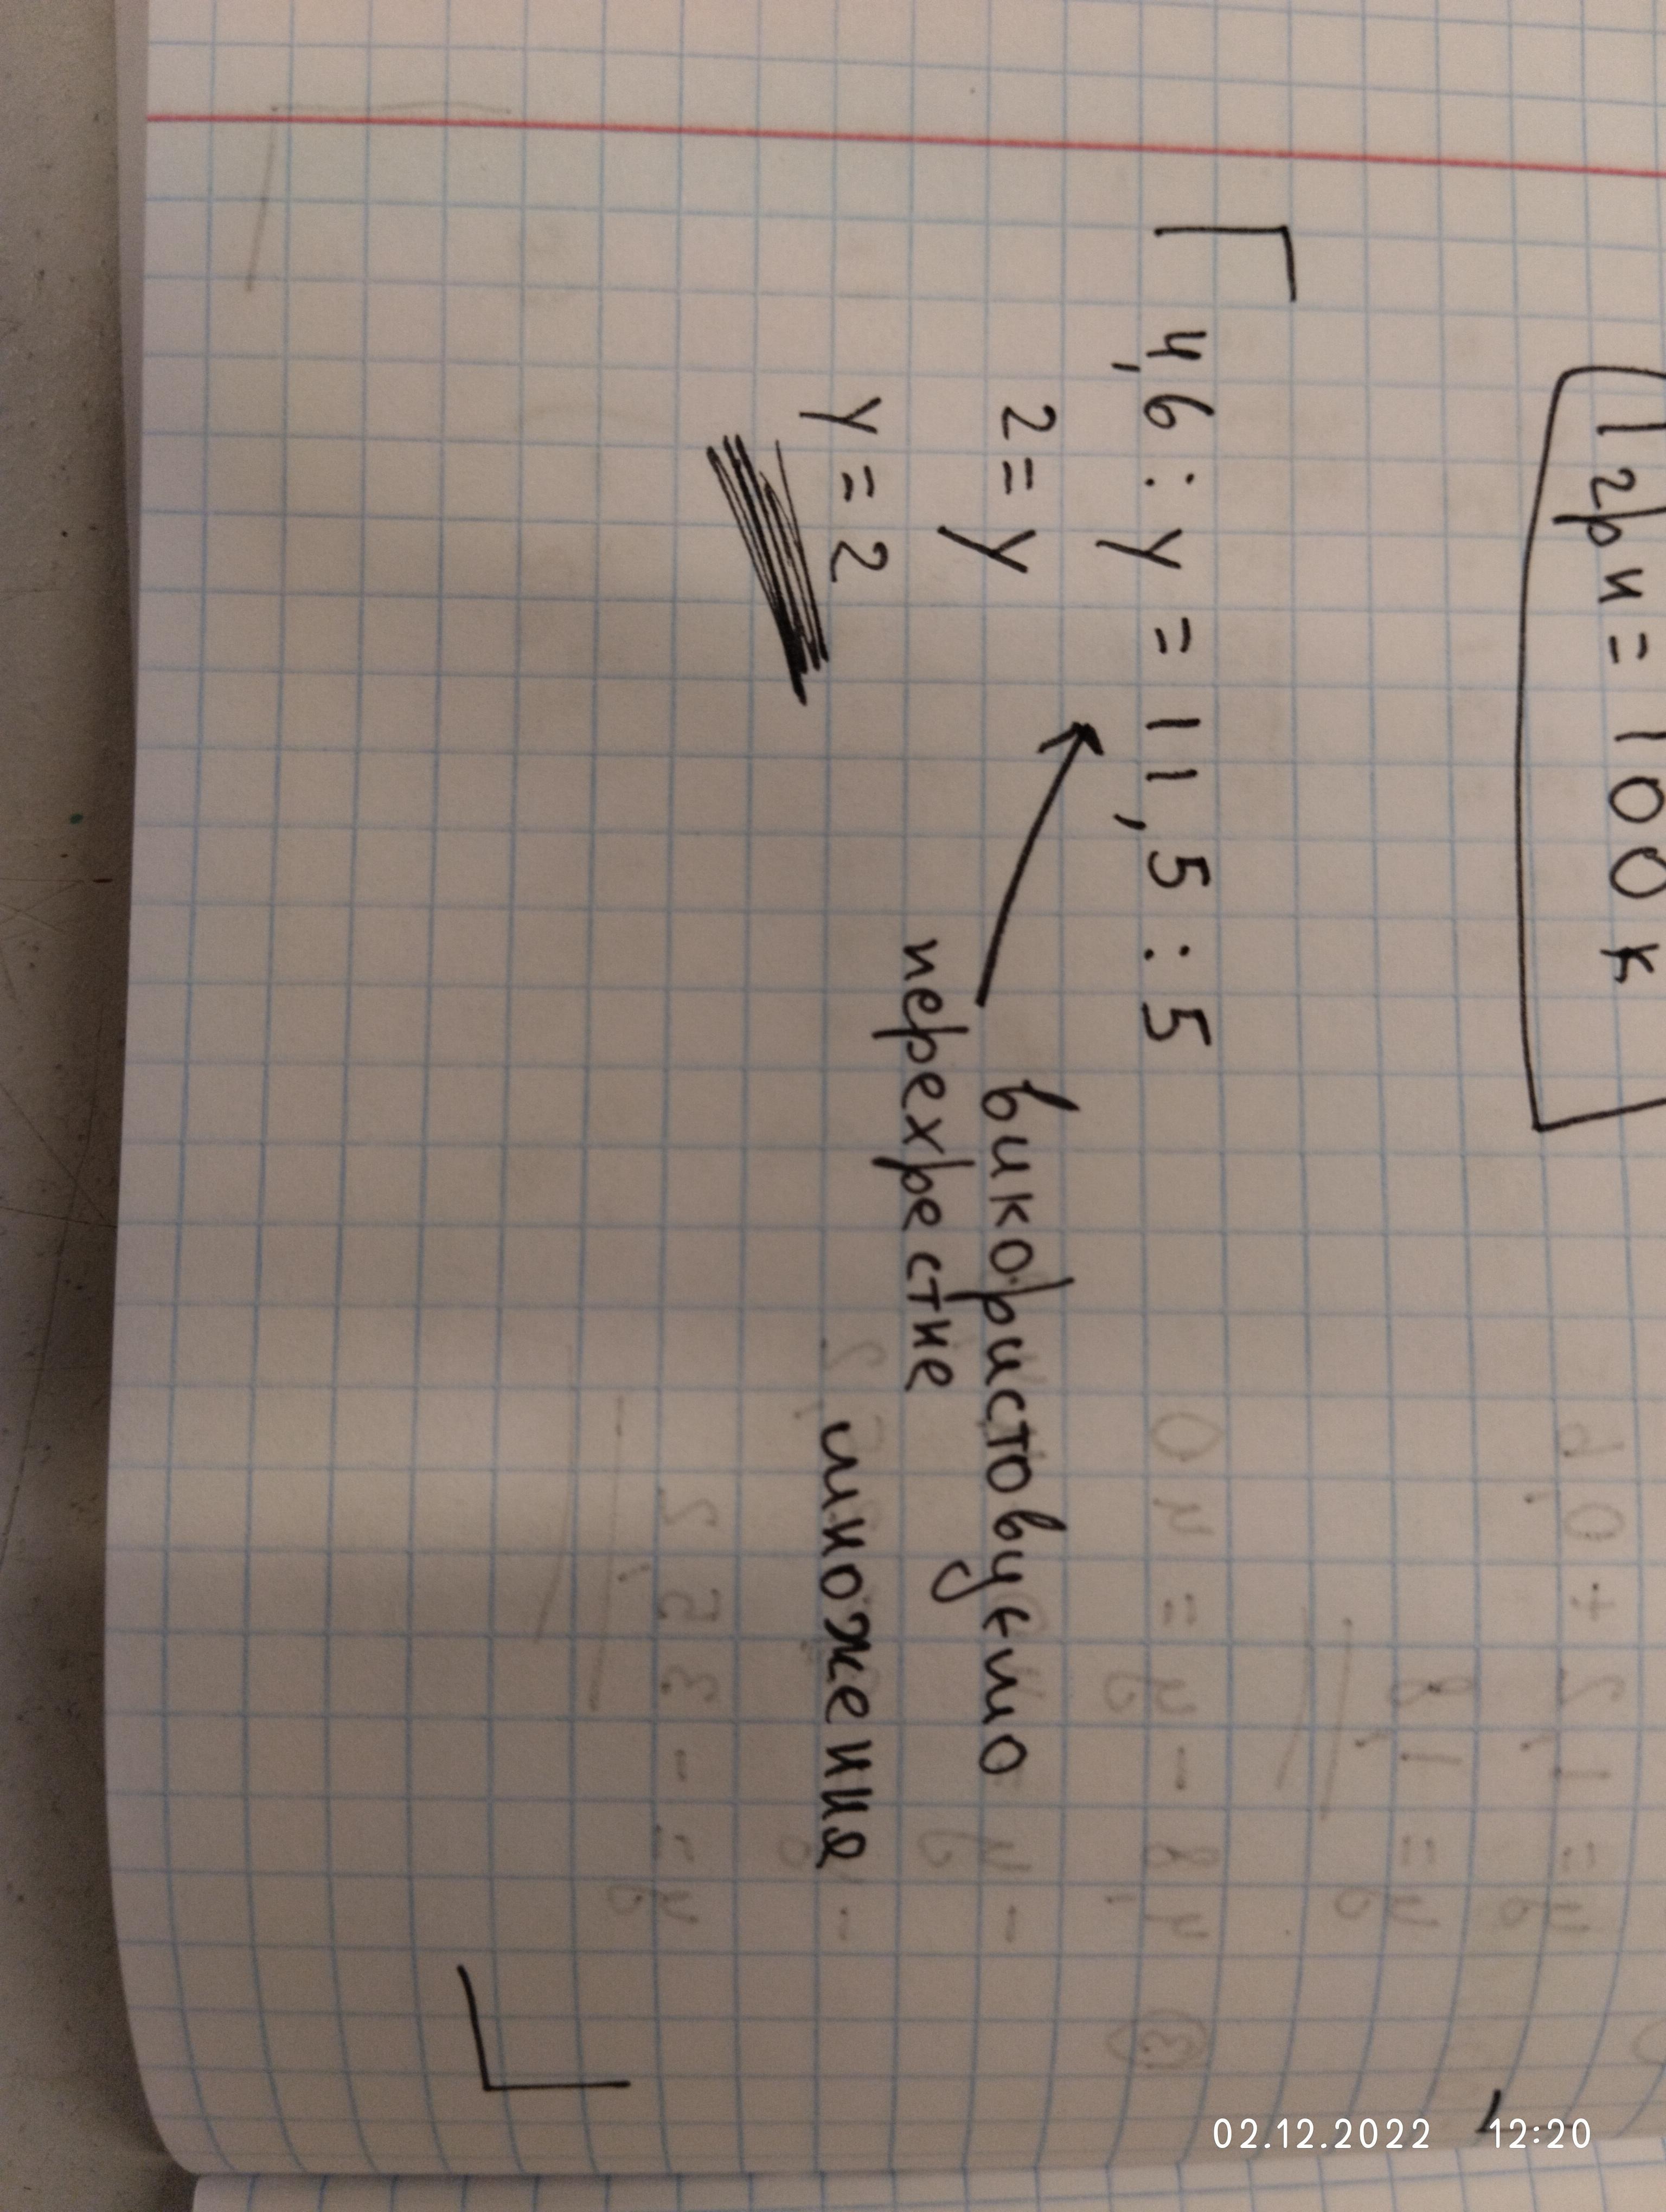 1 грн = 100 к
4,6 : y = 11,5 : 5
2 = y
y = 2
використовуємо
перехрестне
множення
02.12.2022 12:20